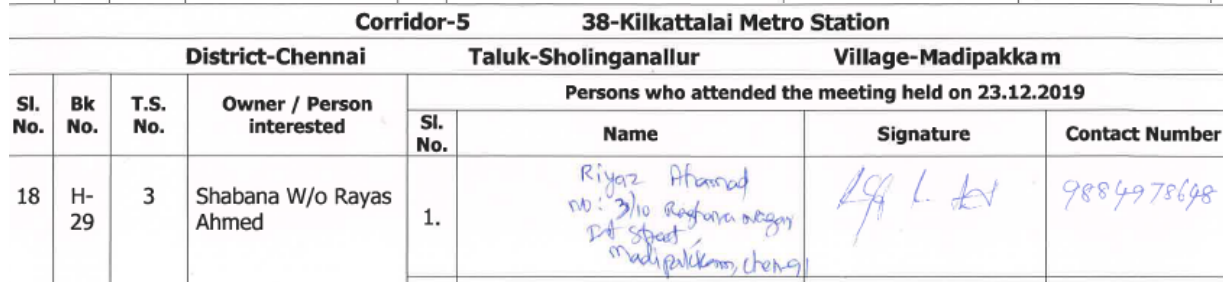 Corridor-5 38-Kilkattalai Metro Station
District-Chennai Taluk-Sholinganallur Village-Madipakkam
Sl. No. Bk No. T.S. No. Owner / Person interested Persons who attended the meeting held on 23.12.2019
Sl. No. Name Signature Contact Number
18 H-29 3 Shabana W/o Rayas Ahmed 1.
Riyaz Ahamad
NO: 3/10 Raghava nagar
Ist Street
Madipakkam, Chennai
9884978648